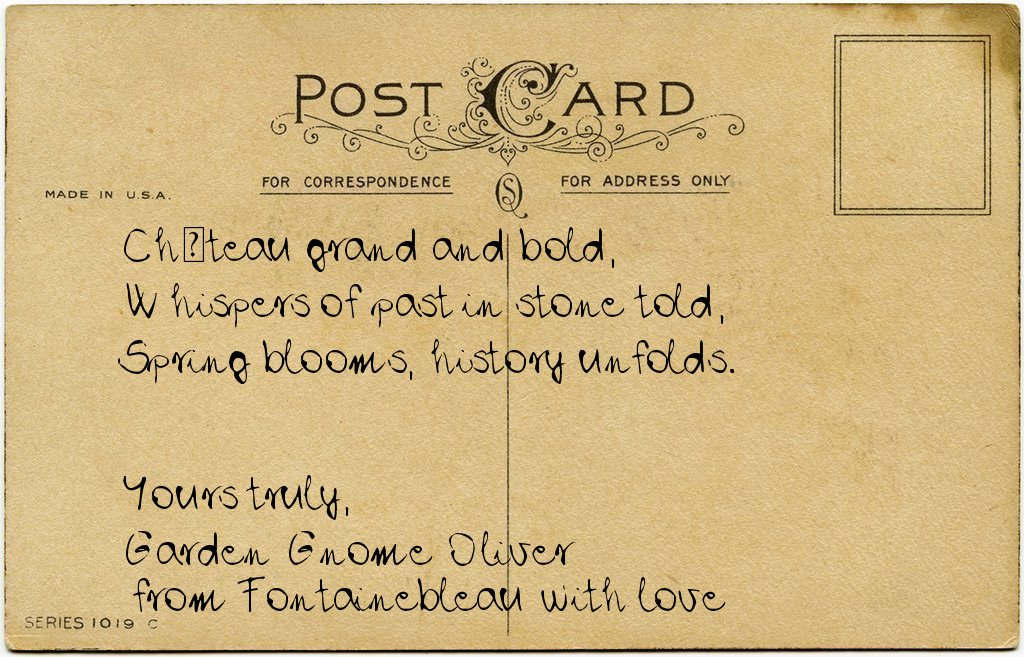 POST CARD
FOR CORRESPONDENCE
FOR ADDRESS ONLY
MADE IN U.S.A.
Ch�teau grand and bold,
Whispers of past in stone told,
Spring blooms, history unfolds.
Yours truly,
Garden Gnome Oliver
from Fontainebleau with love
SERIES 1019 C